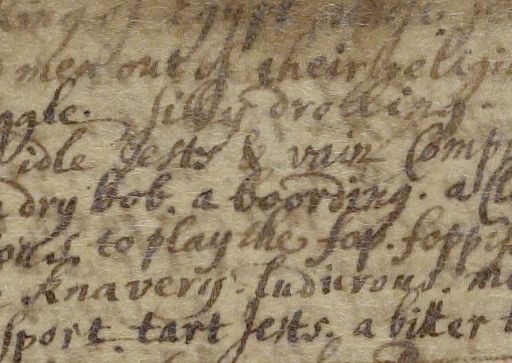 men out of their Religi
ggle. silly drolling.
idle Jests & vain Comp
dry bob. a boording. a
to play the fop. fopp
Knavery. ludicrous. m
sport. tart Jests. a bitter t